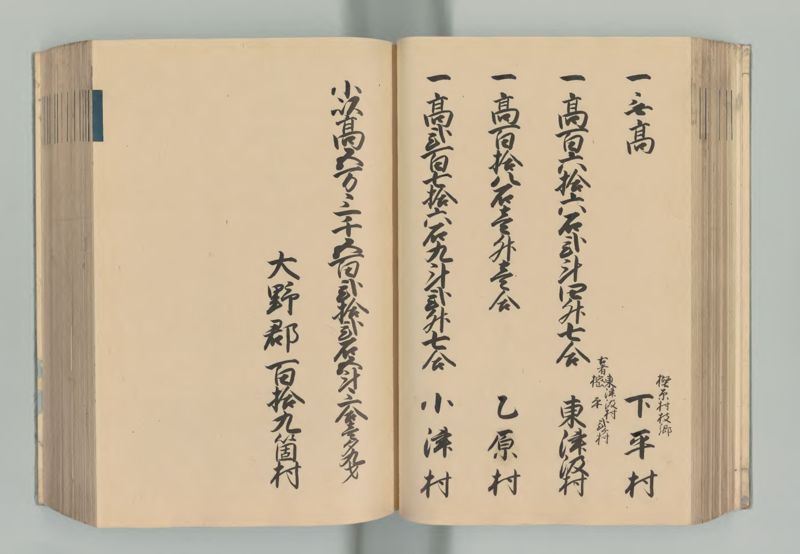 一 無高
樫原村枝郷
下平村
一 高百六拾六石弐斗四升七合
古者東津汲村
弐村
東津汲村
一 高百拾八石壱升壱合
乙原村
一 高弐百七拾六石九斗弐升七合
小津村
小以高五万三千五百弐拾弐石
大野郡 百拾九箇村